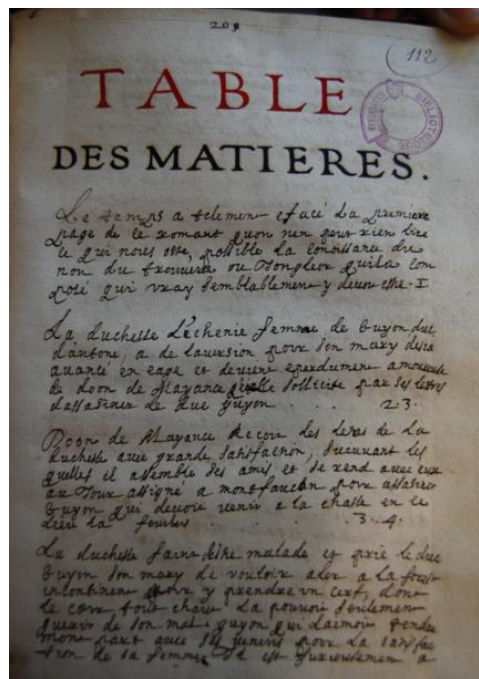 209
112
TABLE
DES MATIERES.
Le temps a telement efacé La premiere
page de ce romant quon nen peut rien lire
ce qui nous oste, possible La conoissance du
non du trouverre ou Jongleor quila com
posé qui vray semblablement y devoit estre. I
La duchesse femme de Guyon duc
d'antone, a de laversion pour son mary desia
avancé en eage et devient eperdument amoureuse
de doon de Mayance quelle sollicite par ses letres
dassasiner le duc guyon . . . 2 3.
Doon de Mayance recoit les letres de La
duchesse avec grande satisfaction, suivant les
quelles il assemble ses amis et se rend avec eux
au Jour assigné a montfaucon pour assasiner
Guyon qui devoit venir a la chasse en ce
. . . 3. 4.
La duchesse faint destre malade et prie le duc
Guyon son mary de vouloir aler a La forest
incontinent pour y prendre un cerf, dont
le cœur tout chaut La pouvoit seulement
guerir de son mal. guyon qui Laimoit tendre
ment part avec ses veneurs pour La satisfac
tion de sa femme Il est furieusement a